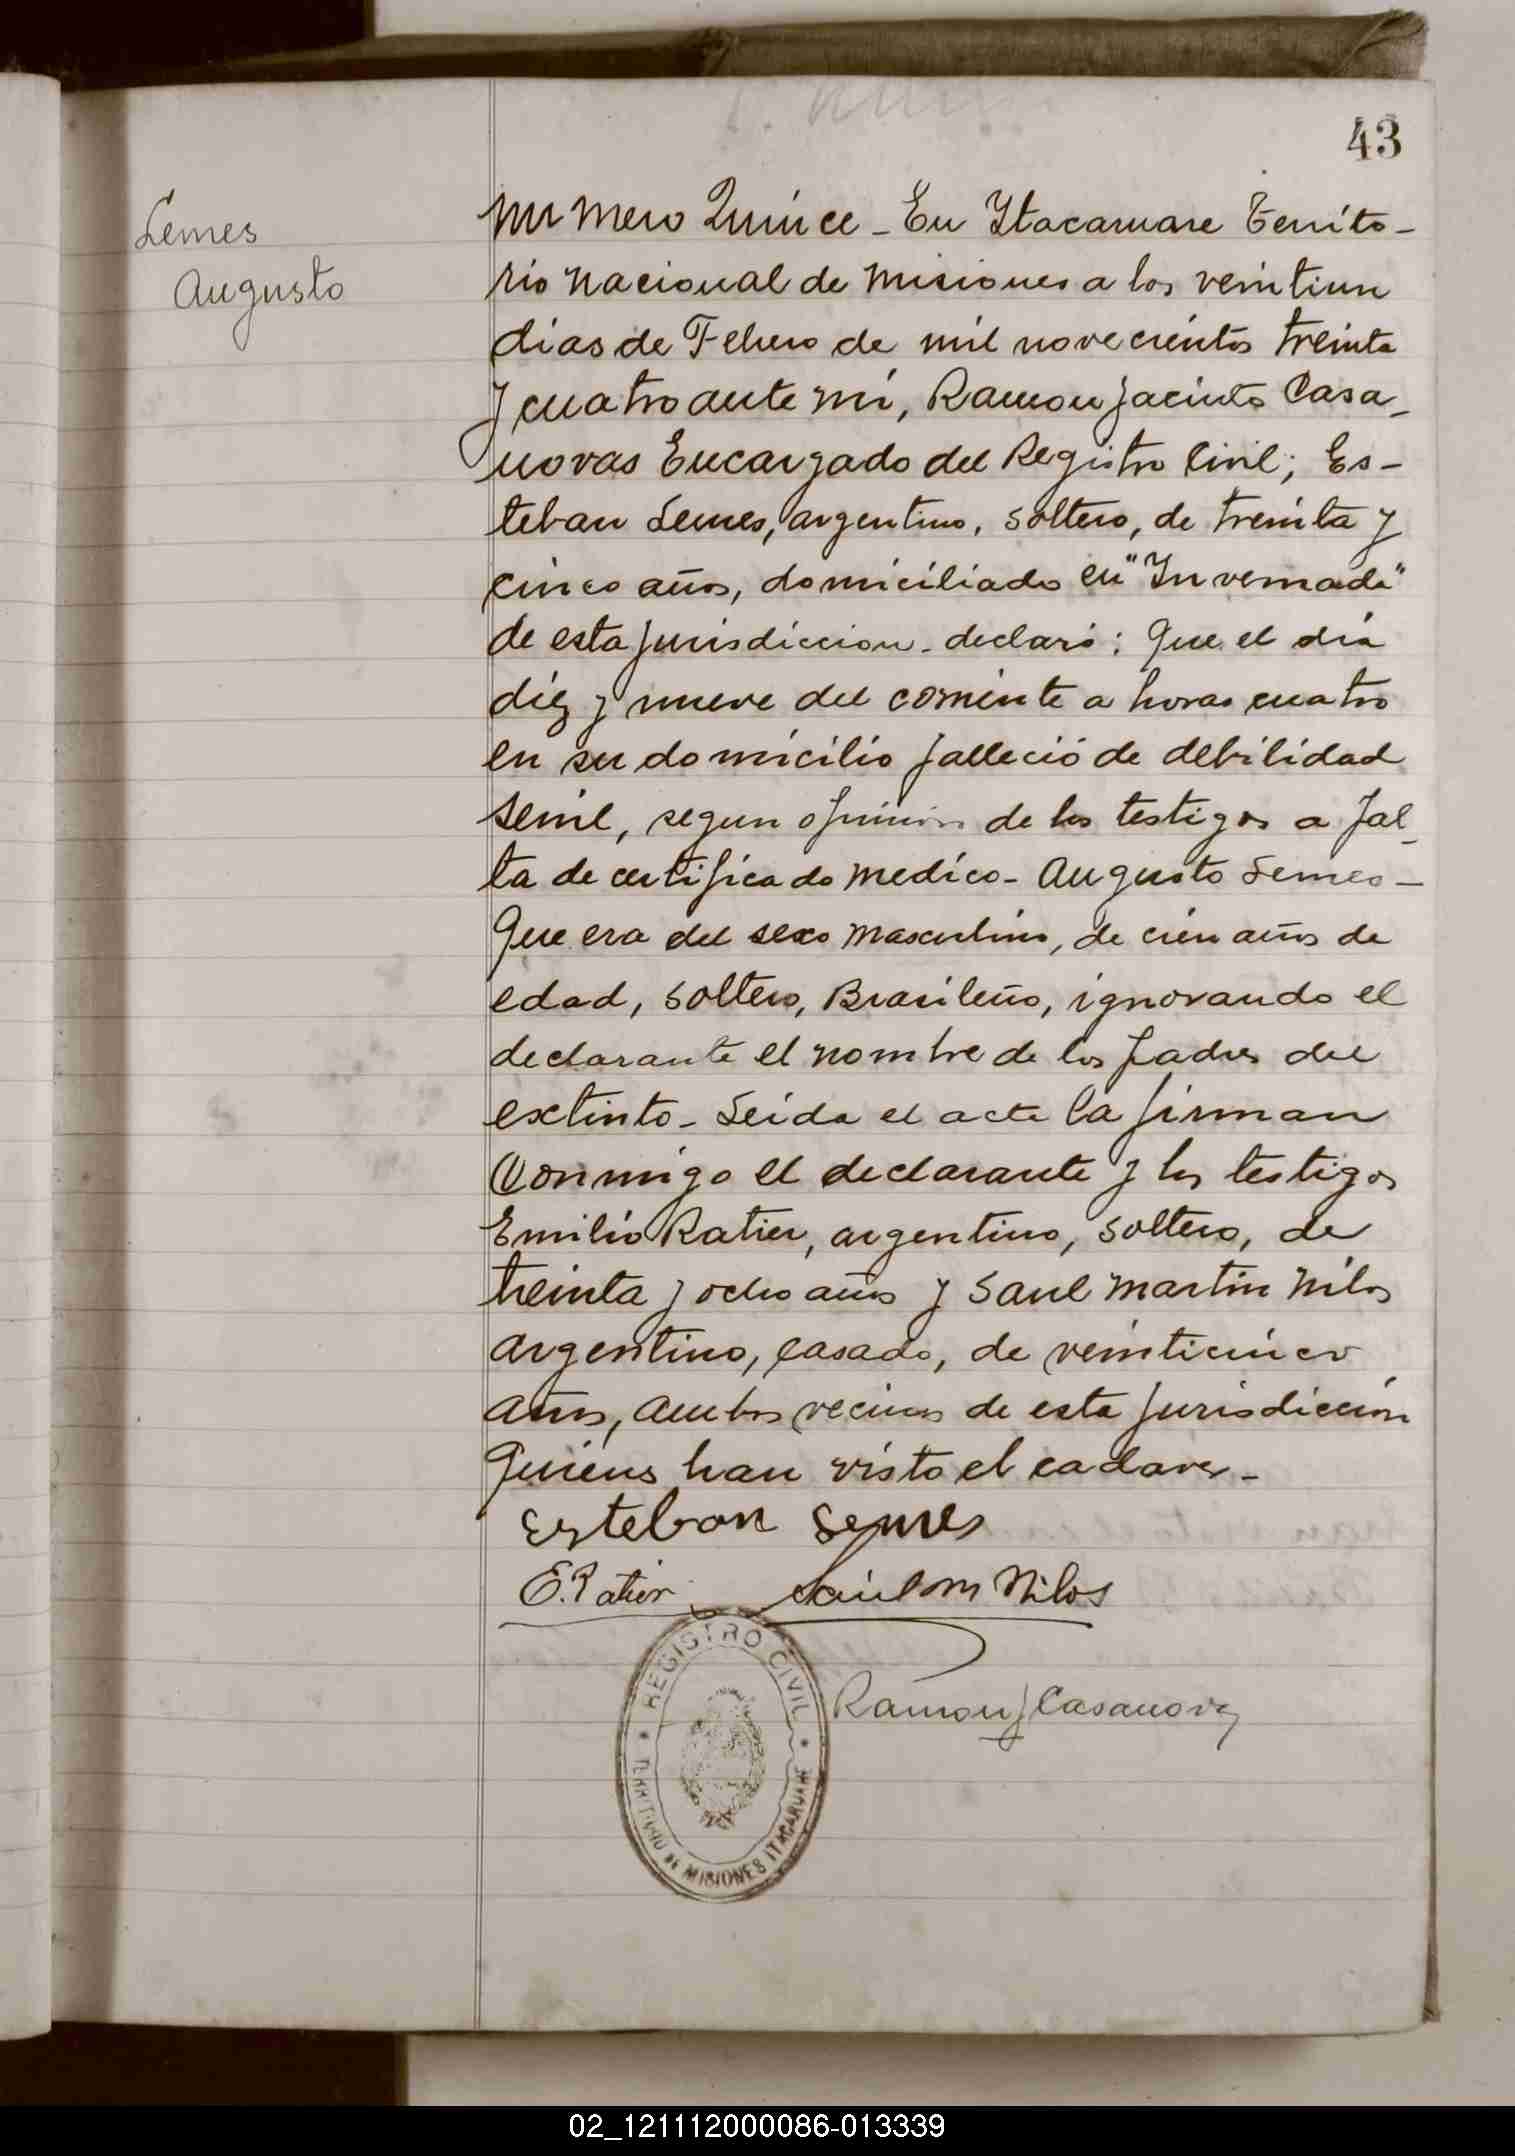 43
Lemes
Augusto
Numero Quince - En Itacaruare Territo-
rio Nacional de Misiones a los veintiun
dias de Febrero de mil novecientos treinta
y cuatro ante mi, Ramon Jacinto Casa-
novas Encargado del Registro Civil; Es-
teban Lemes, argentino, soltero, de treinta y
cinco años, domiciliado en "Invernada"
de esta jurisdiccion. declaró: Que el dia
diez y nueve del corriente a horas cuatro
en su domicilio falleció de debilidad
senil, segun opinion de los testigos a fal-
ta de certificado medico - Augusto Lemes -
Que era del sexo masculino, de cien años de
edad, soltero, Brasileño, ignorando el
declarante el nombre de los padres del
extinto - Leida el acta la firman
Conmigo el declarante y los testigos
Emilio Ratier, argentino, soltero, de
treinta y ocho años y Saul Martin Nilos
argentino, casado, de veinticinco
años, ambos vecinos de esta jurisdicción
Quienes han visto el cadaver -
Esteban Lemes
E. Ratier Saul M Nilos
REGISTRO CIVIL
TERRITORIO DE MISIONES ITACARUARE
Ramon J Casanovas
02_121112000086-013339